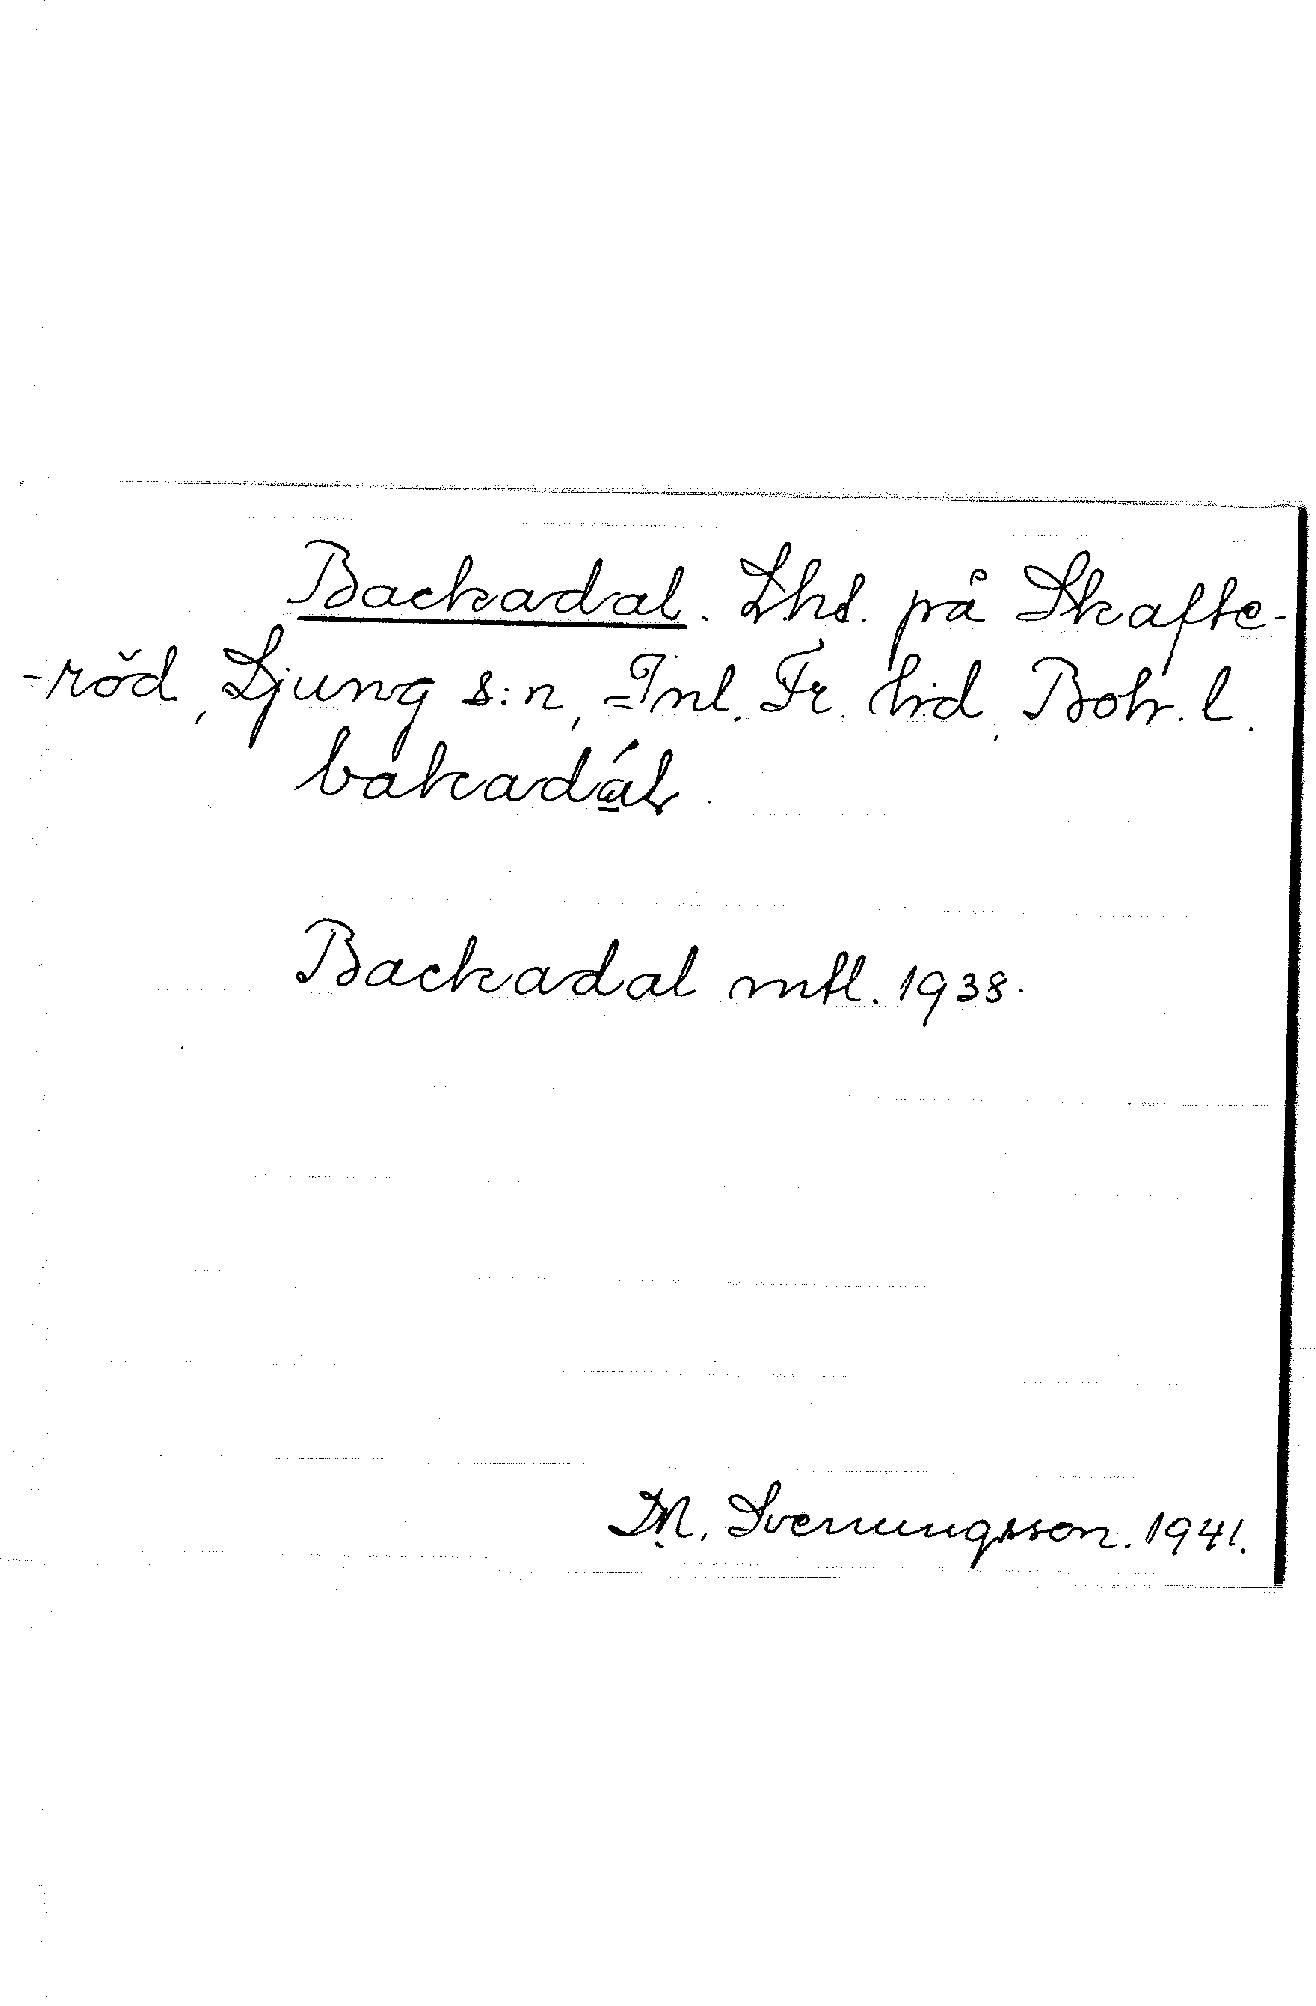 Backadal. Lhs. på Skafte-
-röd, Ljung s:n, Inl. Fr. hd, Boh. l.
bakadál.
Backadal mtl. 1938.
M. Svenungsson. 1941.